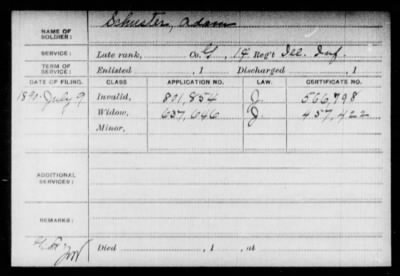 NAME OF SOLDIER: Schuster, Adam
SERVICE: Late rank, Co. G, 14 Reg't Ill. Inf.
TERM OF SERVICE: Enlisted , 1 Discharged , 1
DATE OF FILING. CLASS. APPLICATION NO. LAW. CERTIFICATE NO.
1890 July 9 Invalid, 801,854 J. 566,798
Widow, 637,646 J. 457,422
Minor,
ADDITIONAL SERVICES:
REMARKS:
Died , 1 , at